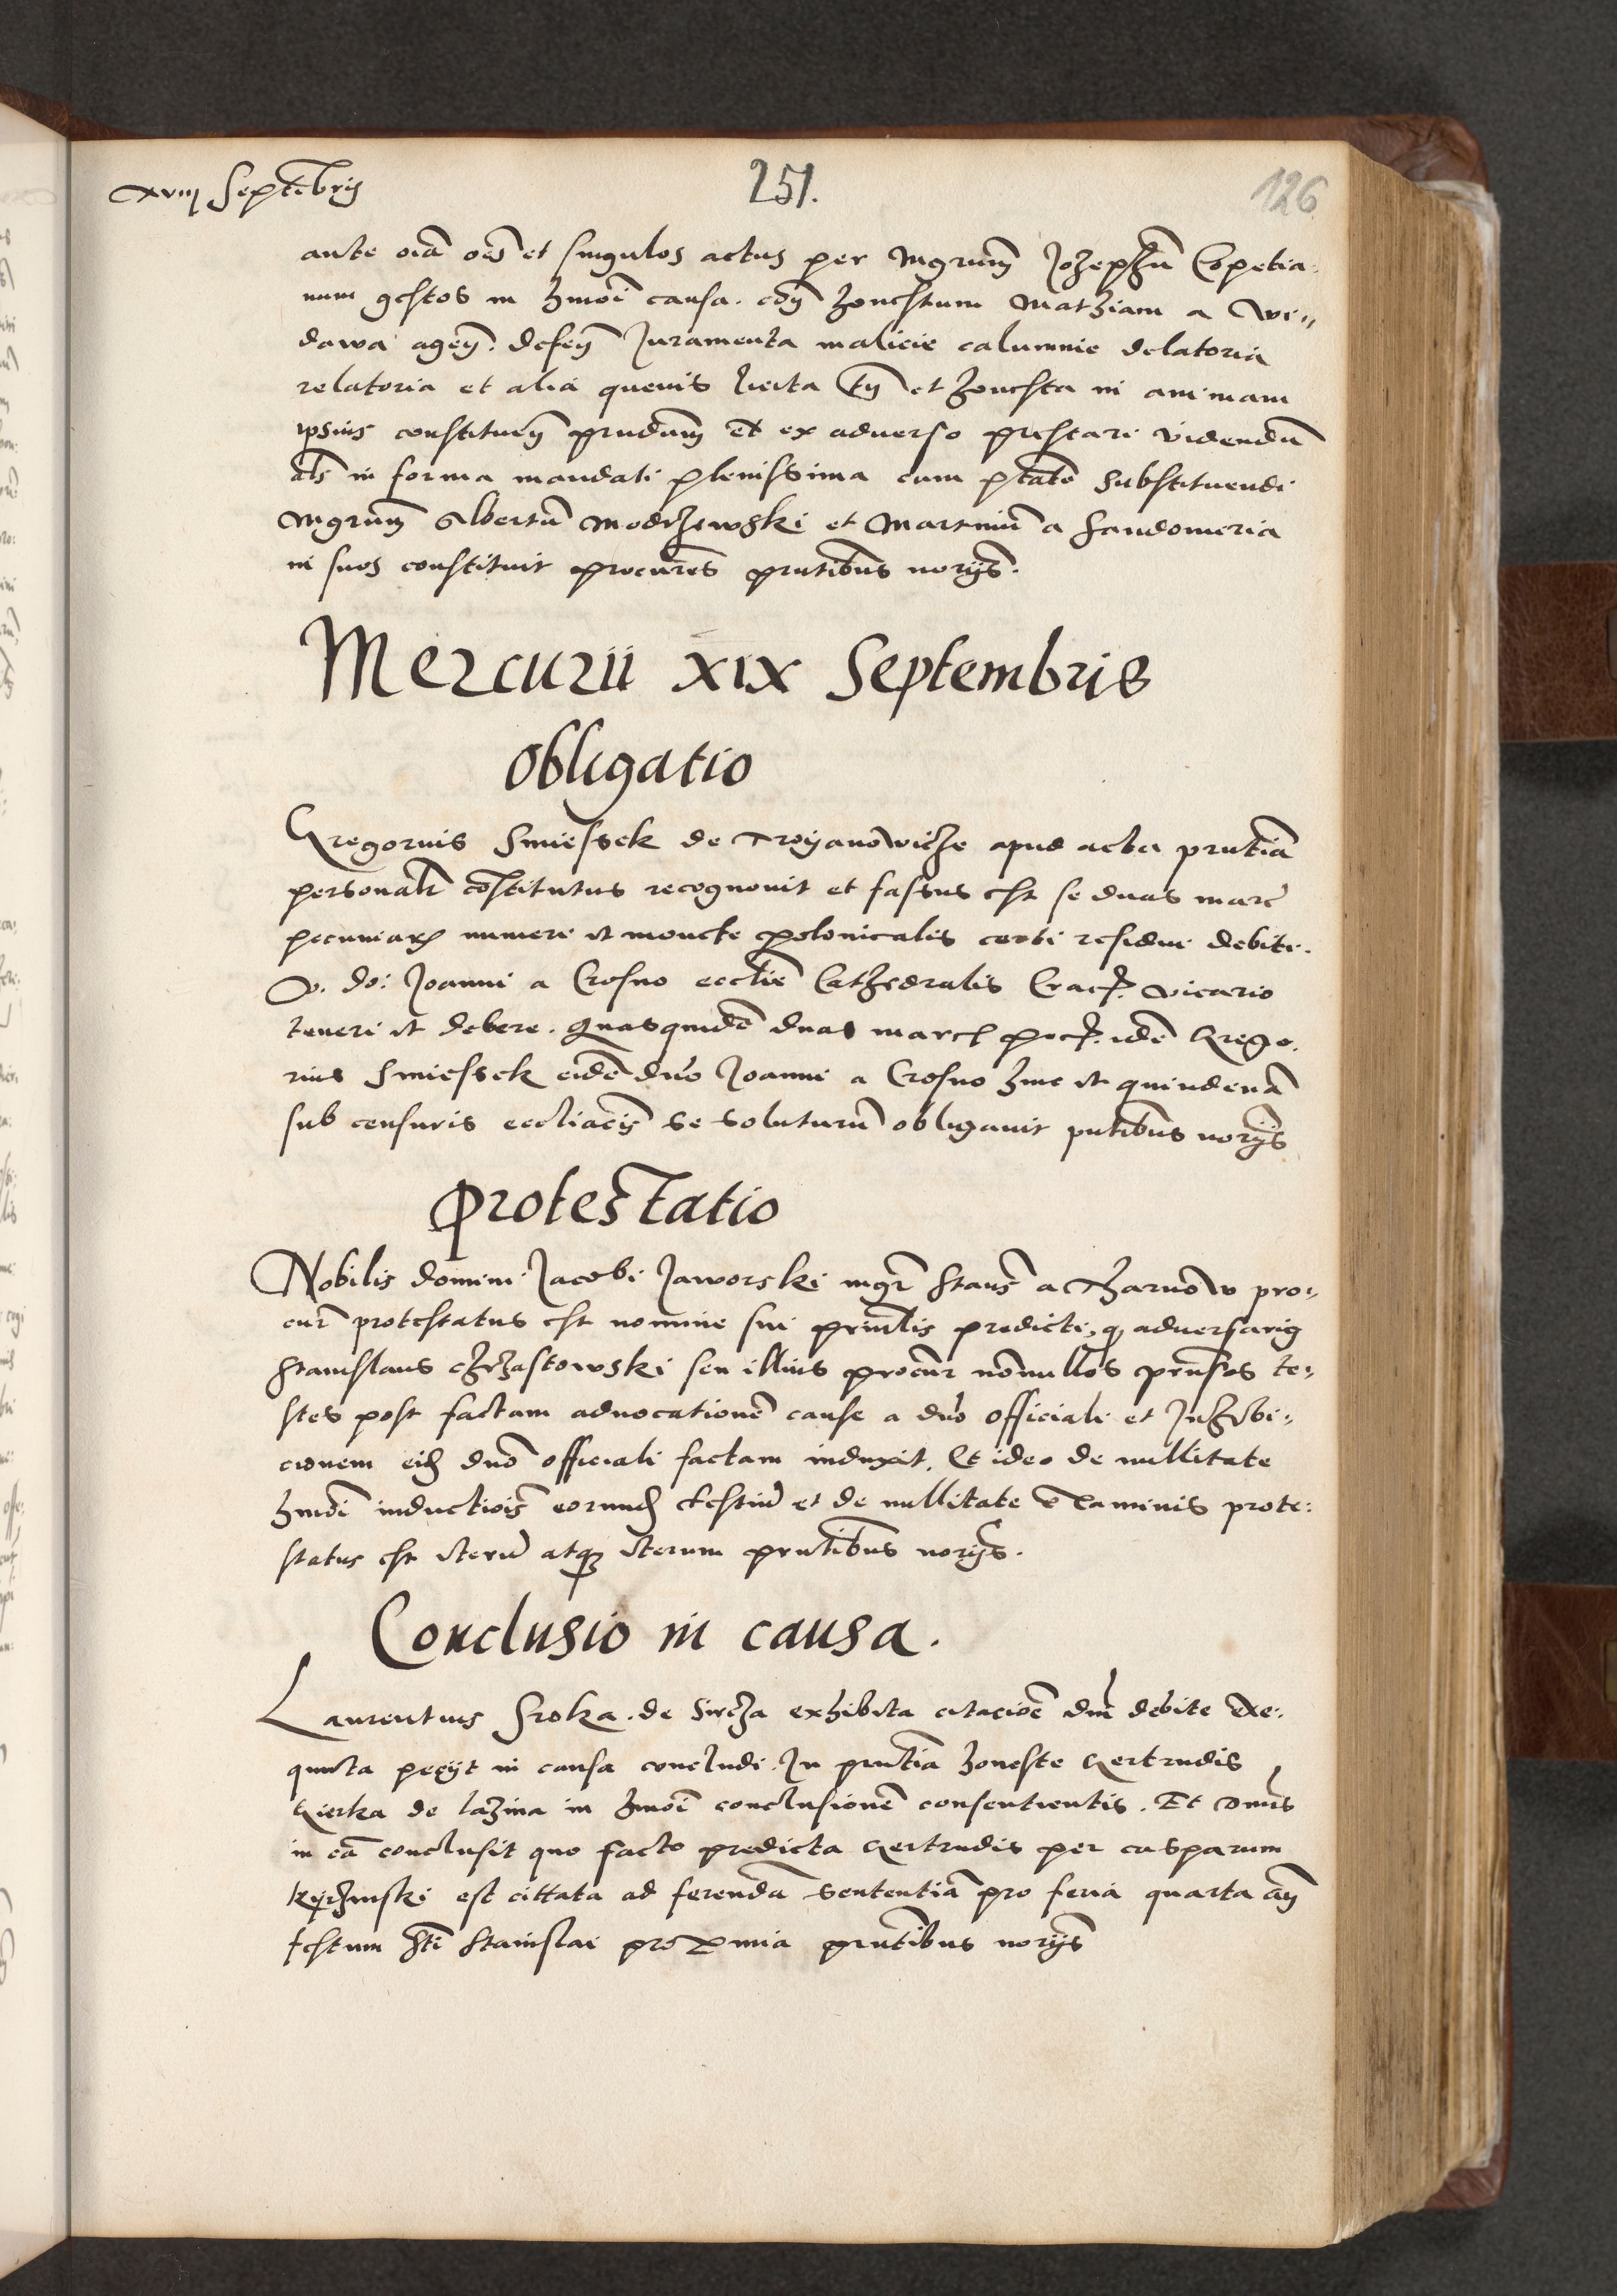 xviij Septẽbris
251.
126
ante oĩa oẽs et singulos actus per Mgrum̃ Jozephũ Copetia-
num gestos in hmõi causa. cõ honestum Mathiam a Wi-
dawa ageñ. defeñ Juramenta malicie calumnie delatoria
relatoria et alia quevis licita tñ et honesta in animam
ipsius constitueñ prñdum et ex adverso prestari videndũ
als in forma mandati plenissima cum ptãte substituendi
Mgrum̃ Albertũ Modrzewski et Martinũ a Sandomeria
in suos constituit procurẽs prñtibus norijs.
Mercurii xix Septembris
Obligatio
Gregorius Smiessek de Troyanowicze apud acta prñtia
personalr cõstitutus recognovit et fassus est se duas marc
pecuniarum numeri et monete polonicalis certi residui debiti.
V. do: Joanni a Crosno ecclie Cathedralis Crac. vicario
teneri et debere. Quasquidẽ duas marc pec. idẽ Grego-
rius Smiessek eidẽ dño Joanni a Crosno hinc et quindenã
sub censuris eccliacis se soluturũ obligavit pntibus norijs
Protestatio
Nobilis domini Jacobi Jaworski mgr Stans a Tharnow pro-
cur protestatus est nomine sui prinlis predicti, q adversarius
Stanislaus Chrzastowski seu illius procur nõnullos prñsos te-
stes post factam advocationẽ cause a dño officiali et Inhibi-
cionem eid dño officiali factam induxit. Et ideo de nullitate
hmõi inductiois eorund testiũ et de nullitate examinis prote-
status est iterũ atq iterum prñtibus norijs.
Conclusio in causa.
Laurentius Sroka de Sircza exhibita citaciõe dni debite exe-
quuta petijt in causa concludi. In prñtia honeste Gertrudis
Gierka de lazina in hmõi conclusionẽ consentientis. Et dnus
in cã conclusit quo facto predicta Gertrudis per casparum
Kyrzinski est cittata ad ferendã sententiã pro feria quarta añ
festum sti Stanislai proxima prñtibus norijs